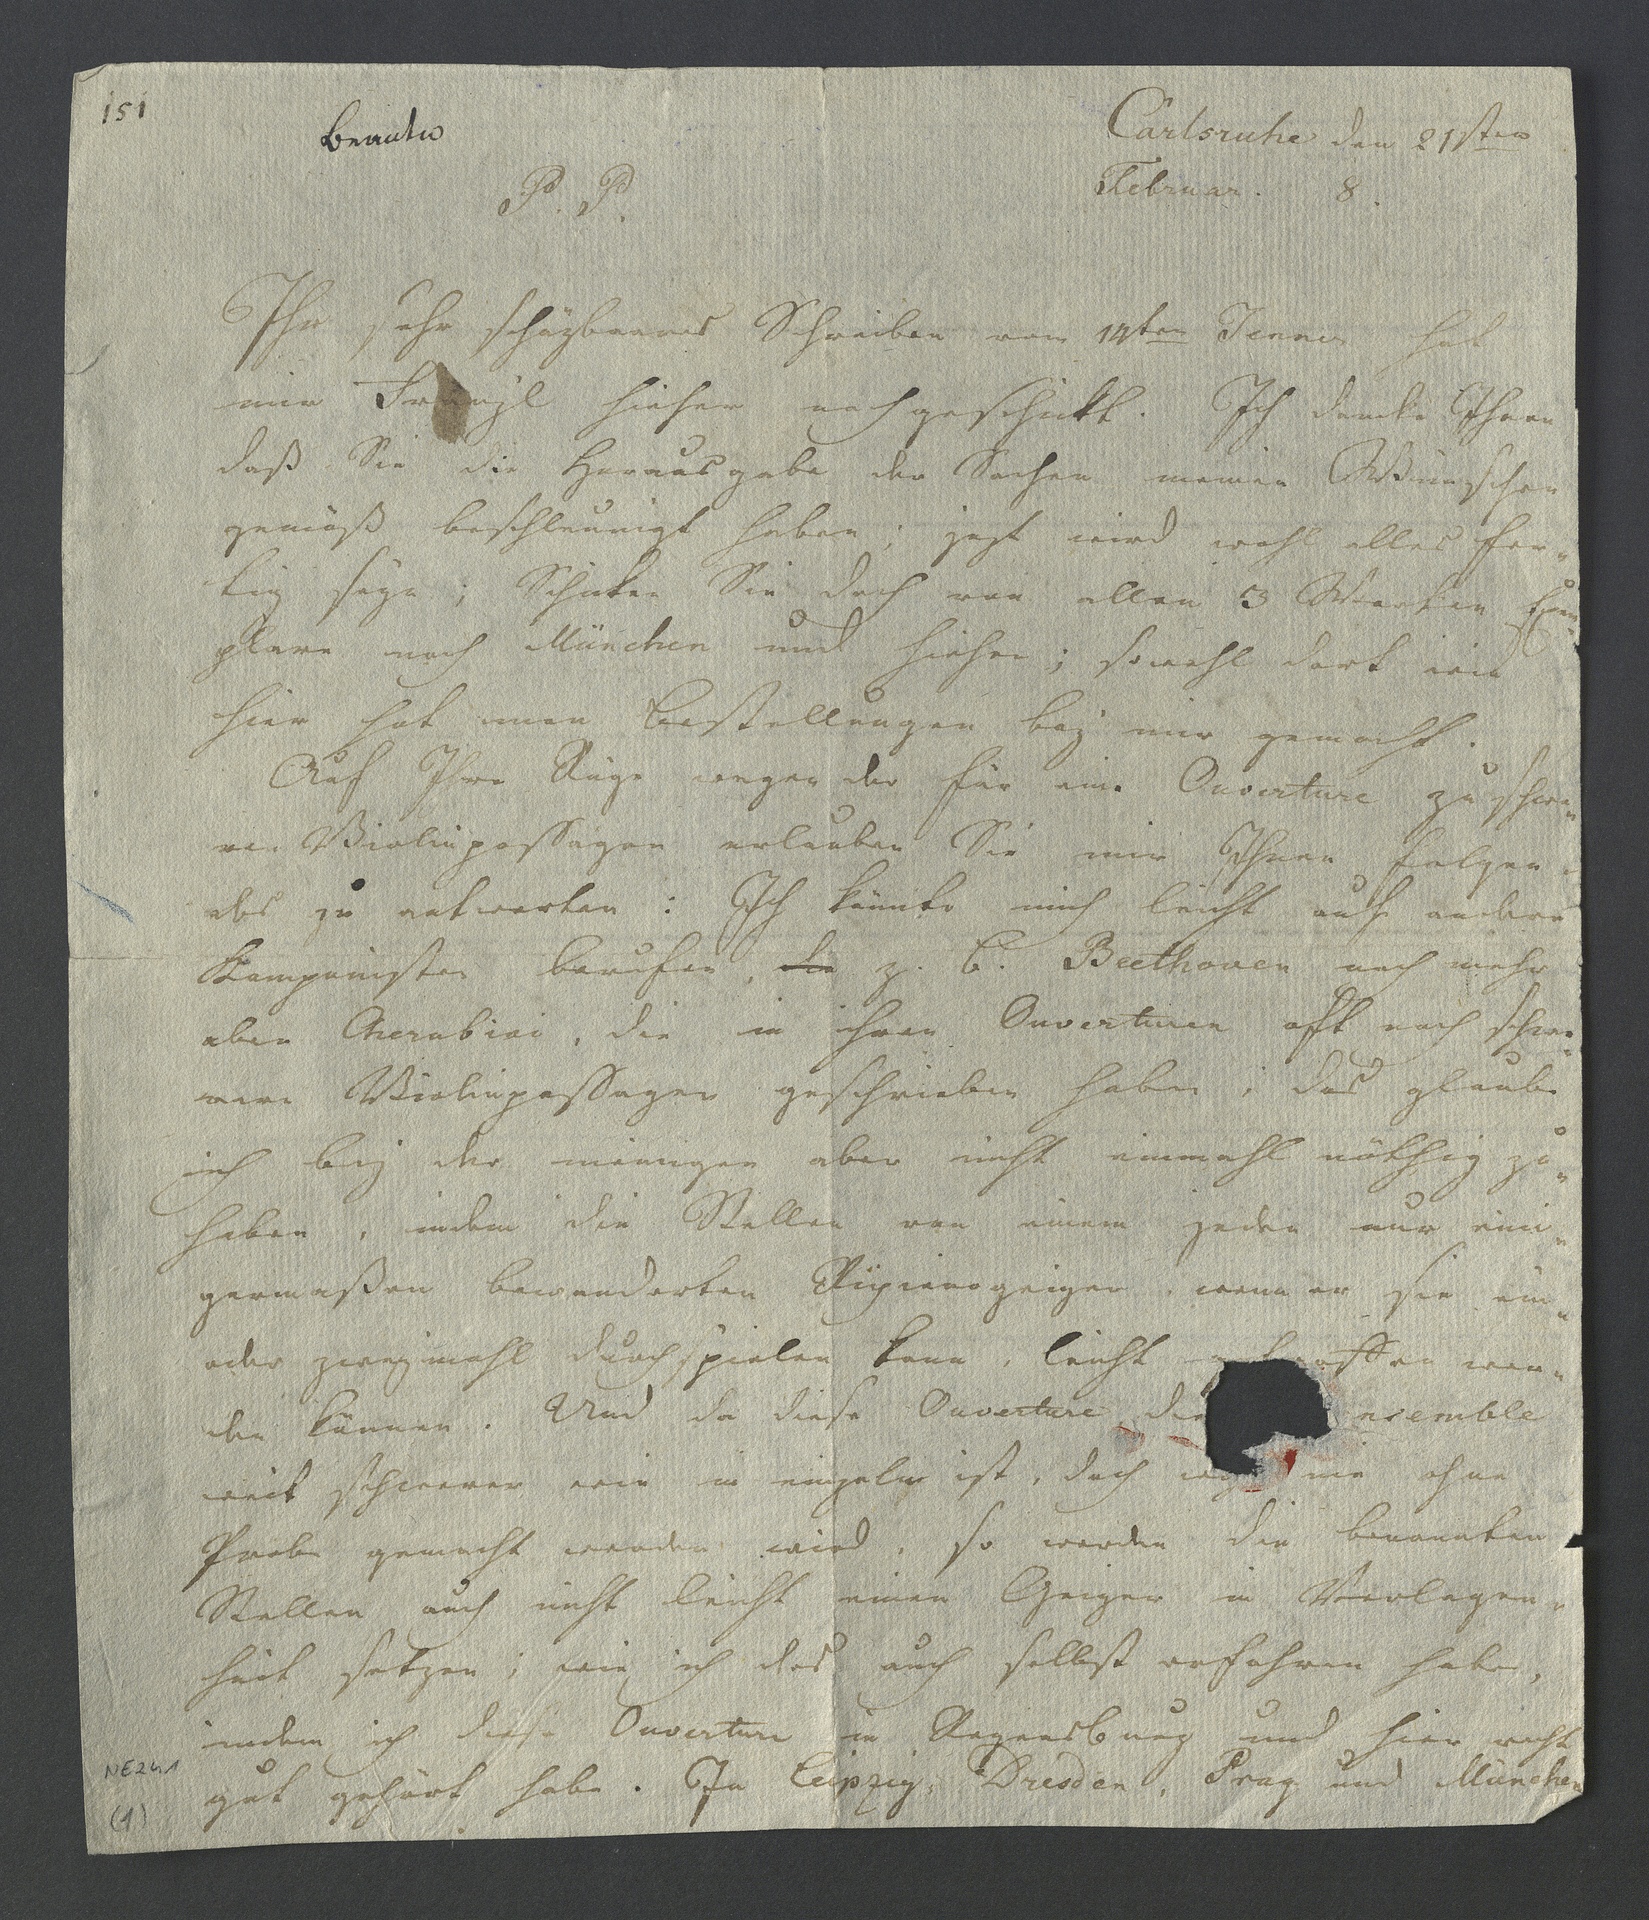 151
beantw
Carlsruhe den 21sten
Februar. 8.
P. P.
Ihr sehr schäzbares Schreiben vom 14ten Jenner hat
mir Fränzl hieher nachgeschickt. Ich danke Ihnen
daß Sie die Herausgabe der Sachen meinen Wünschen
gemäß beschleunigt haben; jezt wird wohl alles fer-
tig seyn; Schicken Sie doch von allen 3 Werken Exem-
plare nach München und hieher; sowohl dort wie
hier hat man Bestellungen bey mir gemacht.
Auf Ihre Rüge wegen der für eine Ouverture zu schwe-
ren Violinpassagen erlauben Sie mir Ihnen folgen-
des zu antworten: Ich könnte mich leicht auf andere
Componisten berufen, die z. B. Beethoven noch mehr
aber Cherubini, die in ihren Ouverturen oft noch schwe-
rere Violinpassagen geschrieben haben; das glaube
ich bey der meinigen aber nicht einmahl nöthig zu
haben, indem die Stellen von einem jeden nur eini-
germaßen bewanderten Ripienogeiger, wenn er sie ein-
oder zweymahl durchspielen kann, leicht getroffen wer-
den können. Und da diese Ouverture die nsemble
weit schwerer wie im einzeln ist, doch nie ohne
Probe gemacht werden wird, so werden die benannten
Stellen auch nicht leicht einen Geiger in Verlegen-
heit setzen; wie ich das auch selbst erfahren habe,
indem ich diese Ouverture in Regensburg und hier recht
gut gehört habe. In Leipzig, Dresden, Prag und München
NE241
(1)